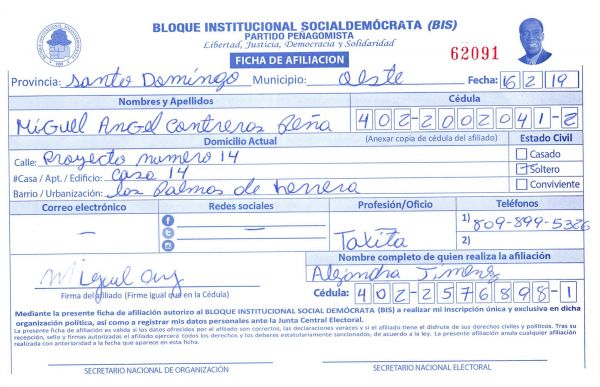 BLOQUE INSTITUCIONAL SOCIALDEMÓCRATA (BIS)
PARTIDO PEÑAGOMISTA
Libertad, Justicia, Democracia y Solidaridad
FICHA DE AFILIACION
62091
Provincia: Santo Domingo Municipio: Oeste Fecha: 16 2 19
Nombres y Apellidos Cédula
Miguel Angel Contreras Peña 402-2002041-2
Domicilio Actual (Anexar copia de cédula del afiliado) Estado Civil
Calle: Proyecto numero 14 Casado
#Casa / Apt. / Edificio: Casa 14 Soltero
Barrio / Urbanización: los Palmos de herrera Conviviente
Correo electrónico Redes sociales Profesión/Oficio Teléfonos
— — Taxita 1) 809-899-5326
2)
Nombre completo de quien realiza la afiliación
Miguel Alejandra Jimenez
Firma del afiliado (Firme igual que en la Cédula) Cédula: 402-2576898-1
Mediante la presente ficha de afiliación autorizo al BLOQUE INSTITUCIONAL SOCIAL DEMÓCRATA (BIS) a realizar mi inscripción única y exclusiva en dicha
organización política, así como a registrar mis datos personales ante la Junta Central Electoral.
La presente ficha de afiliación es válida si los datos ofrecidos por el afiliado son correctos, las declaraciones veraces y si el afiliado tiene el disfrute de sus derechos civiles y políticos. Tras su
recepción, sello y firmas autorizadas el afiliado ejercerá todos los derechos y los deberes estatutariamente sancionados, de acuerdo a la ley. La presente afiliación anula cualquier afiliación
realizada con anterioridad a la fecha que aparece en esta ficha.
SECRETARIO NACIONAL DE ORGANIZACIÓN SECRETARIO NACIONAL ELECTORAL